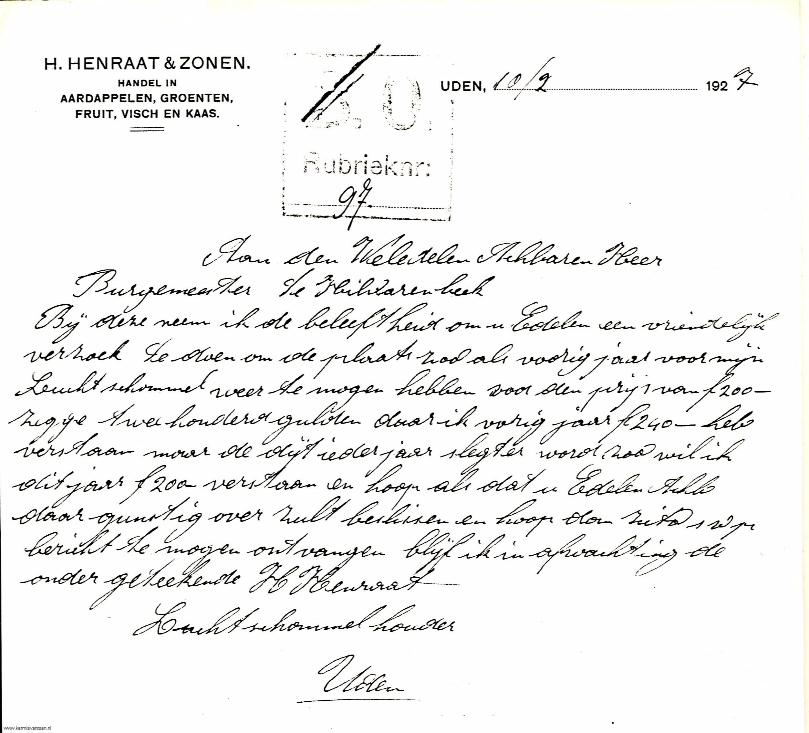 H. HENRAAT & ZONEN.
HANDEL IN
AARDAPPELEN, GROENTEN,
FRUIT, VISCH EN KAAS.
B. O.
Rubrieknr:
97
UDEN, 10/2 1927
Aan den Weledelen Achbaren Heer
Burgemeester te Hilvarenbeek
Bij deze neem ik de beleeftheid om u Edelen een vriendelijk
verzoek te doen om de plaats zoo als voorig jaar voor mijn
Luchtschommel weer te mogen hebben voor den prijs van f 200-
zegge twee honderd gulden daar ik vorig jaar f 240- heb
verstaan maar de dijt ieder jaar slegter word zoo wil ik
dit jaar f 200 verstaan en hoop als dat u Edelen Achb
daar gunstig over zult beslissen en hoop dan s v p
bericht te mogen ontvangen blijf ik in afwachting de
onder geteekende H Henraat
Luchtschommel houder
Uden
www.kermisvanssen.nl